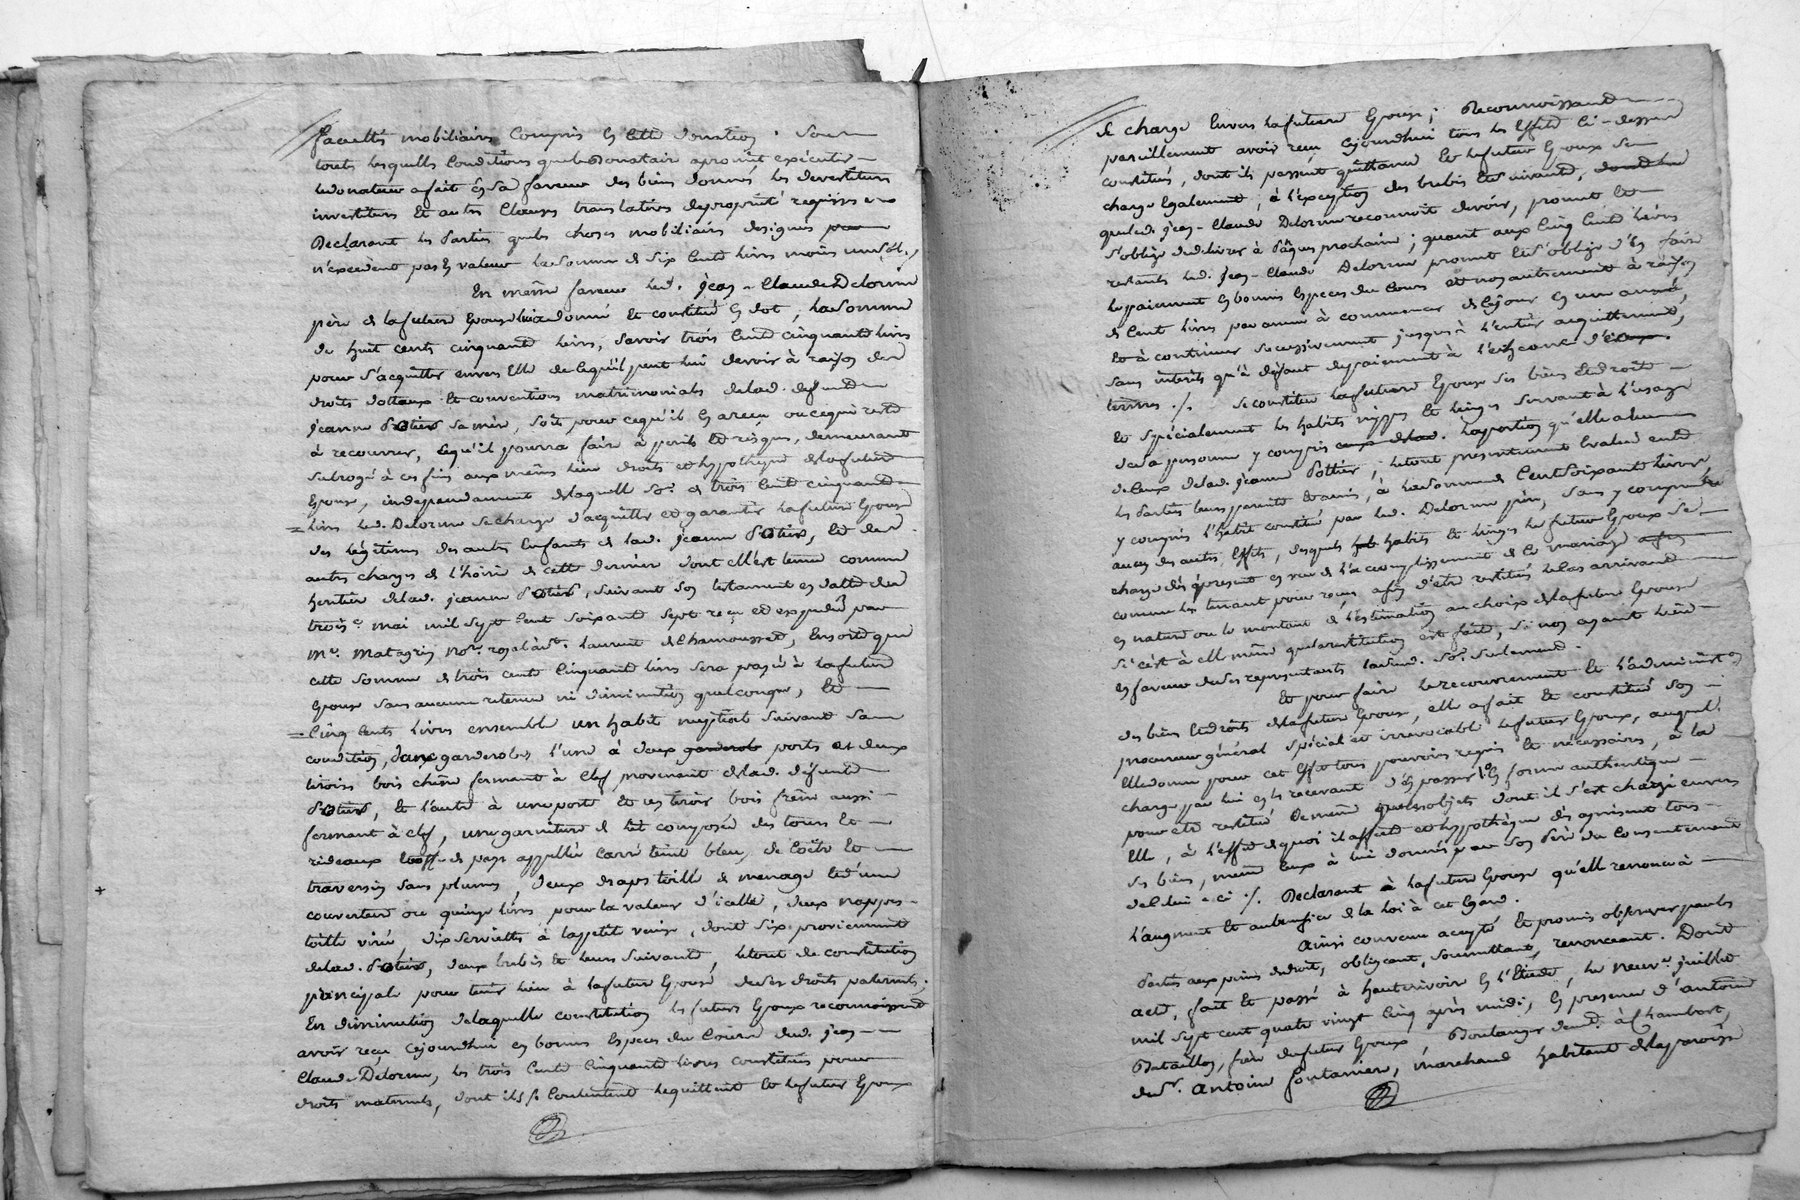 facultés mobiliaires compris en cette donation. Sous
toutes lesquelles conditions que le Donataire a promit exécuter
le donateur a fait en sa faveur des biens donnés les devestitures
investitures et autres clauses translatives de propriété requises
Declarant les Parties que les choses mobiliaires designées
n'excedent pas en valeur la somme de six cents livres moins un sol.
En même faveur led. jean-Claude Delorme
père de la future Epouse lui a donné et constitué en dot, la somme
de huit cents cinquante livres, savoir trois cents cinquante livres
pour s'acquitter envers Elle de ce qu'il peut lui devoir à raison des
droits dottaux et conventions matrimoniales de lad. defunte
jeanne Potier sa mère, soit pour ce qu'il en a reçu ou ce qui reste
à recouvrer, ce qu'il pourra faire à perils et risques, demeurant
subrogé à ces fins aux mêmes lieu droits et hypotheque de la future
Epouse, independament de laquelle so.e de trois cents cinquante
livres led. Delorme se charge d'acquitter et garantir la future Epouse
des légitimes des autres Enfants de lad. jeanne Potier, et des
autres charges de l'hoirie de cette derniere dont elle est tenue comme
heritiere de lad. jeanne Potier, suivant son testament en datte du
trois.e mai mil sept cent soixante sept reçu et expedié par
M.e Matagrin no.re royal à St. laurent de Chamousset, Ensorte que
cette somme de trois cents cinquante livres sera payée à la future
Epouse sans aucune retenue ni diminution quelconque, et
Cinq cents livres ensemble un habit nuptial suivant sa
condition, deux garderobes, l'une à deux portes et deux
tiroirs bois chêne fermant à clef provenant de lad. défunte
Potier, et l'autre à une porte et un tiroir bois frêne aussi
fermant à clef, une garniture de lit composée des tours et
rideaux étoffe de pays appellée Carré teint bleu, de Coëtre et
traversin sans plumes, deux draps toille de menage et d'une
couverture ou quinze livres pour la valeur d'icelle, deux nappes
toille virée, dix serviettes à la petite venise, dont six proviennent
de lad. Potier, deux brebis et leurs suivants, le tout de constitution
principale pour tenir lieu à la future Epouse de ses droits paternels.
En diminution de laquelle constitution les futurs Epoux reconnoissent
avoir reçu cejourdhui en bonnes Especes du Cours dud. jean
Claude Delorme, les trois Cents Cinquante livres constitués pour
droits maternels, dont ils se contentent le quittent et le futur Epoux
Se charge Envers la future Epouse; Reconnoissant
pareillement avoir reçu cejourdhui tous les Effets ci-dessus
constitués, dont ils passent quittance et le futur Epoux se
charge Egalement, à l'exception des brebis et suivants,
que led. jean-Claude Delorme reconnoit devoir, promet et
s'oblige de délivrer à Pâques prochain; quant aux Cinq Cents livres
restants led. jean-Claude Delorme promet et s'oblige d'en faire
le paiement en bonnes Especes du Cours et non autrement à raison
de Cent livres par année à commencer de ce jour en un an
et à continuer successivement jusqu'à l'entier acquittement,
sans interêts qu'à défaut de paiement à l'echeance des
termes ./. Se constitue la future Epouse ses biens et droits
et spécialement les habits nippes et linges servant à l'usage
de sa personne y compris la portion qu'elle a eue
de Ceux de lad. jeanne Pottier; le tout presentement Evalué entre
les Parties leurs parents et amis, à la somme de Cent soixante livres,
y compris l'habit constitué par led. Delorme père, sans y comprendre
aucun des autres Effets, desquels habits et linges le futur Epoux se
charge dès à present en vue de l'accomplissement de ce mariage
comme les tenant pour reçus afin d'être restitués le cas arrivant
en nature ou le montant de l'estimation au choix de la future Epouse
si c'est à elle même que la restitution est faite, si non ayant lieu
en faveur de ses representants la dud. so.e seulement.
Et pour faire le recouvrement et l'administ.on
des biens et droits de la future Epouse, elle a fait et constitué son
procureur général spécial et irrevocable le futur Epoux, auquel
Elle donne pour cet Effet tous pouvoirs requis et nécessaires, à la
charge par lui en les recevant d'en passer en forme authentique
pour être restitué de même que les objets dont il s'est chargé envers
Elle, à l'effet de quoi il affecte et hypothèque dès à present tous
ses biens, même Ceux à lui donnés par son Père du Consentement
de celui-ci ./. Declarant à la future Epouse qu'elle renonce à
l'augment et au benefice de la loi à cet Egard.
Ainsi convenu accepté et promis observer par les
Parties aux peines de droit, obligeant, soumettant, renonceant. Dont
acte, fait et passé à hauterivoire en l'Etude, le neuv.e juillet
mil sept cent quatre vingt cinq après midi, en presence d'antoine
Bataillon, frère du futur Epoux, Boulanger demt. à Chambost,
du Sr. Antoine fontanier, marchand habitant de la paroisse